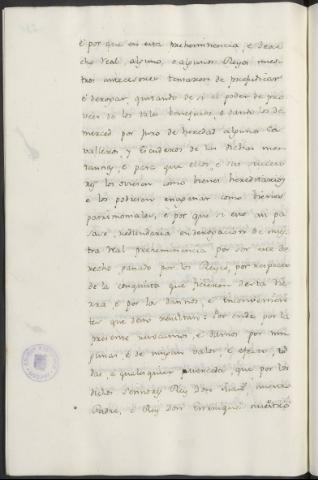 é por que en esta preheminencia, e dere
cho Real, alguno, o algunos Reyes nues
tros antecesores tentaron de perjudicar
é derogar, quitando de si el poder de pro
veer de los tales beneficios, e dando los de
merced por juro de heredad algunos Ca
valleros, y Escuderos de las dichas mon
tannas, e para que ellos, e sus succeso
res los oviesen como bienes hereditarios
e los podiesen enagenar como bienes
patrimoniales, e por que si esto asi pa
sase, redundaria en derogacion de nues
tra Real preheminencia por ser este de
recho ganado por los Reyes, por respecto
de la conquista que ficieron desta tie
rra e por la dannos, e inconvenien
tes que dello resultan: Por ende por la
presente revocamos, e damos por nin
gunas, é de ningun valor, e efecto, to
das, e qualesquier mercedes, que por los
dichos Sennores Rey Don Juan, nuestro
Padre, e Rey Don Enrrique nuestro